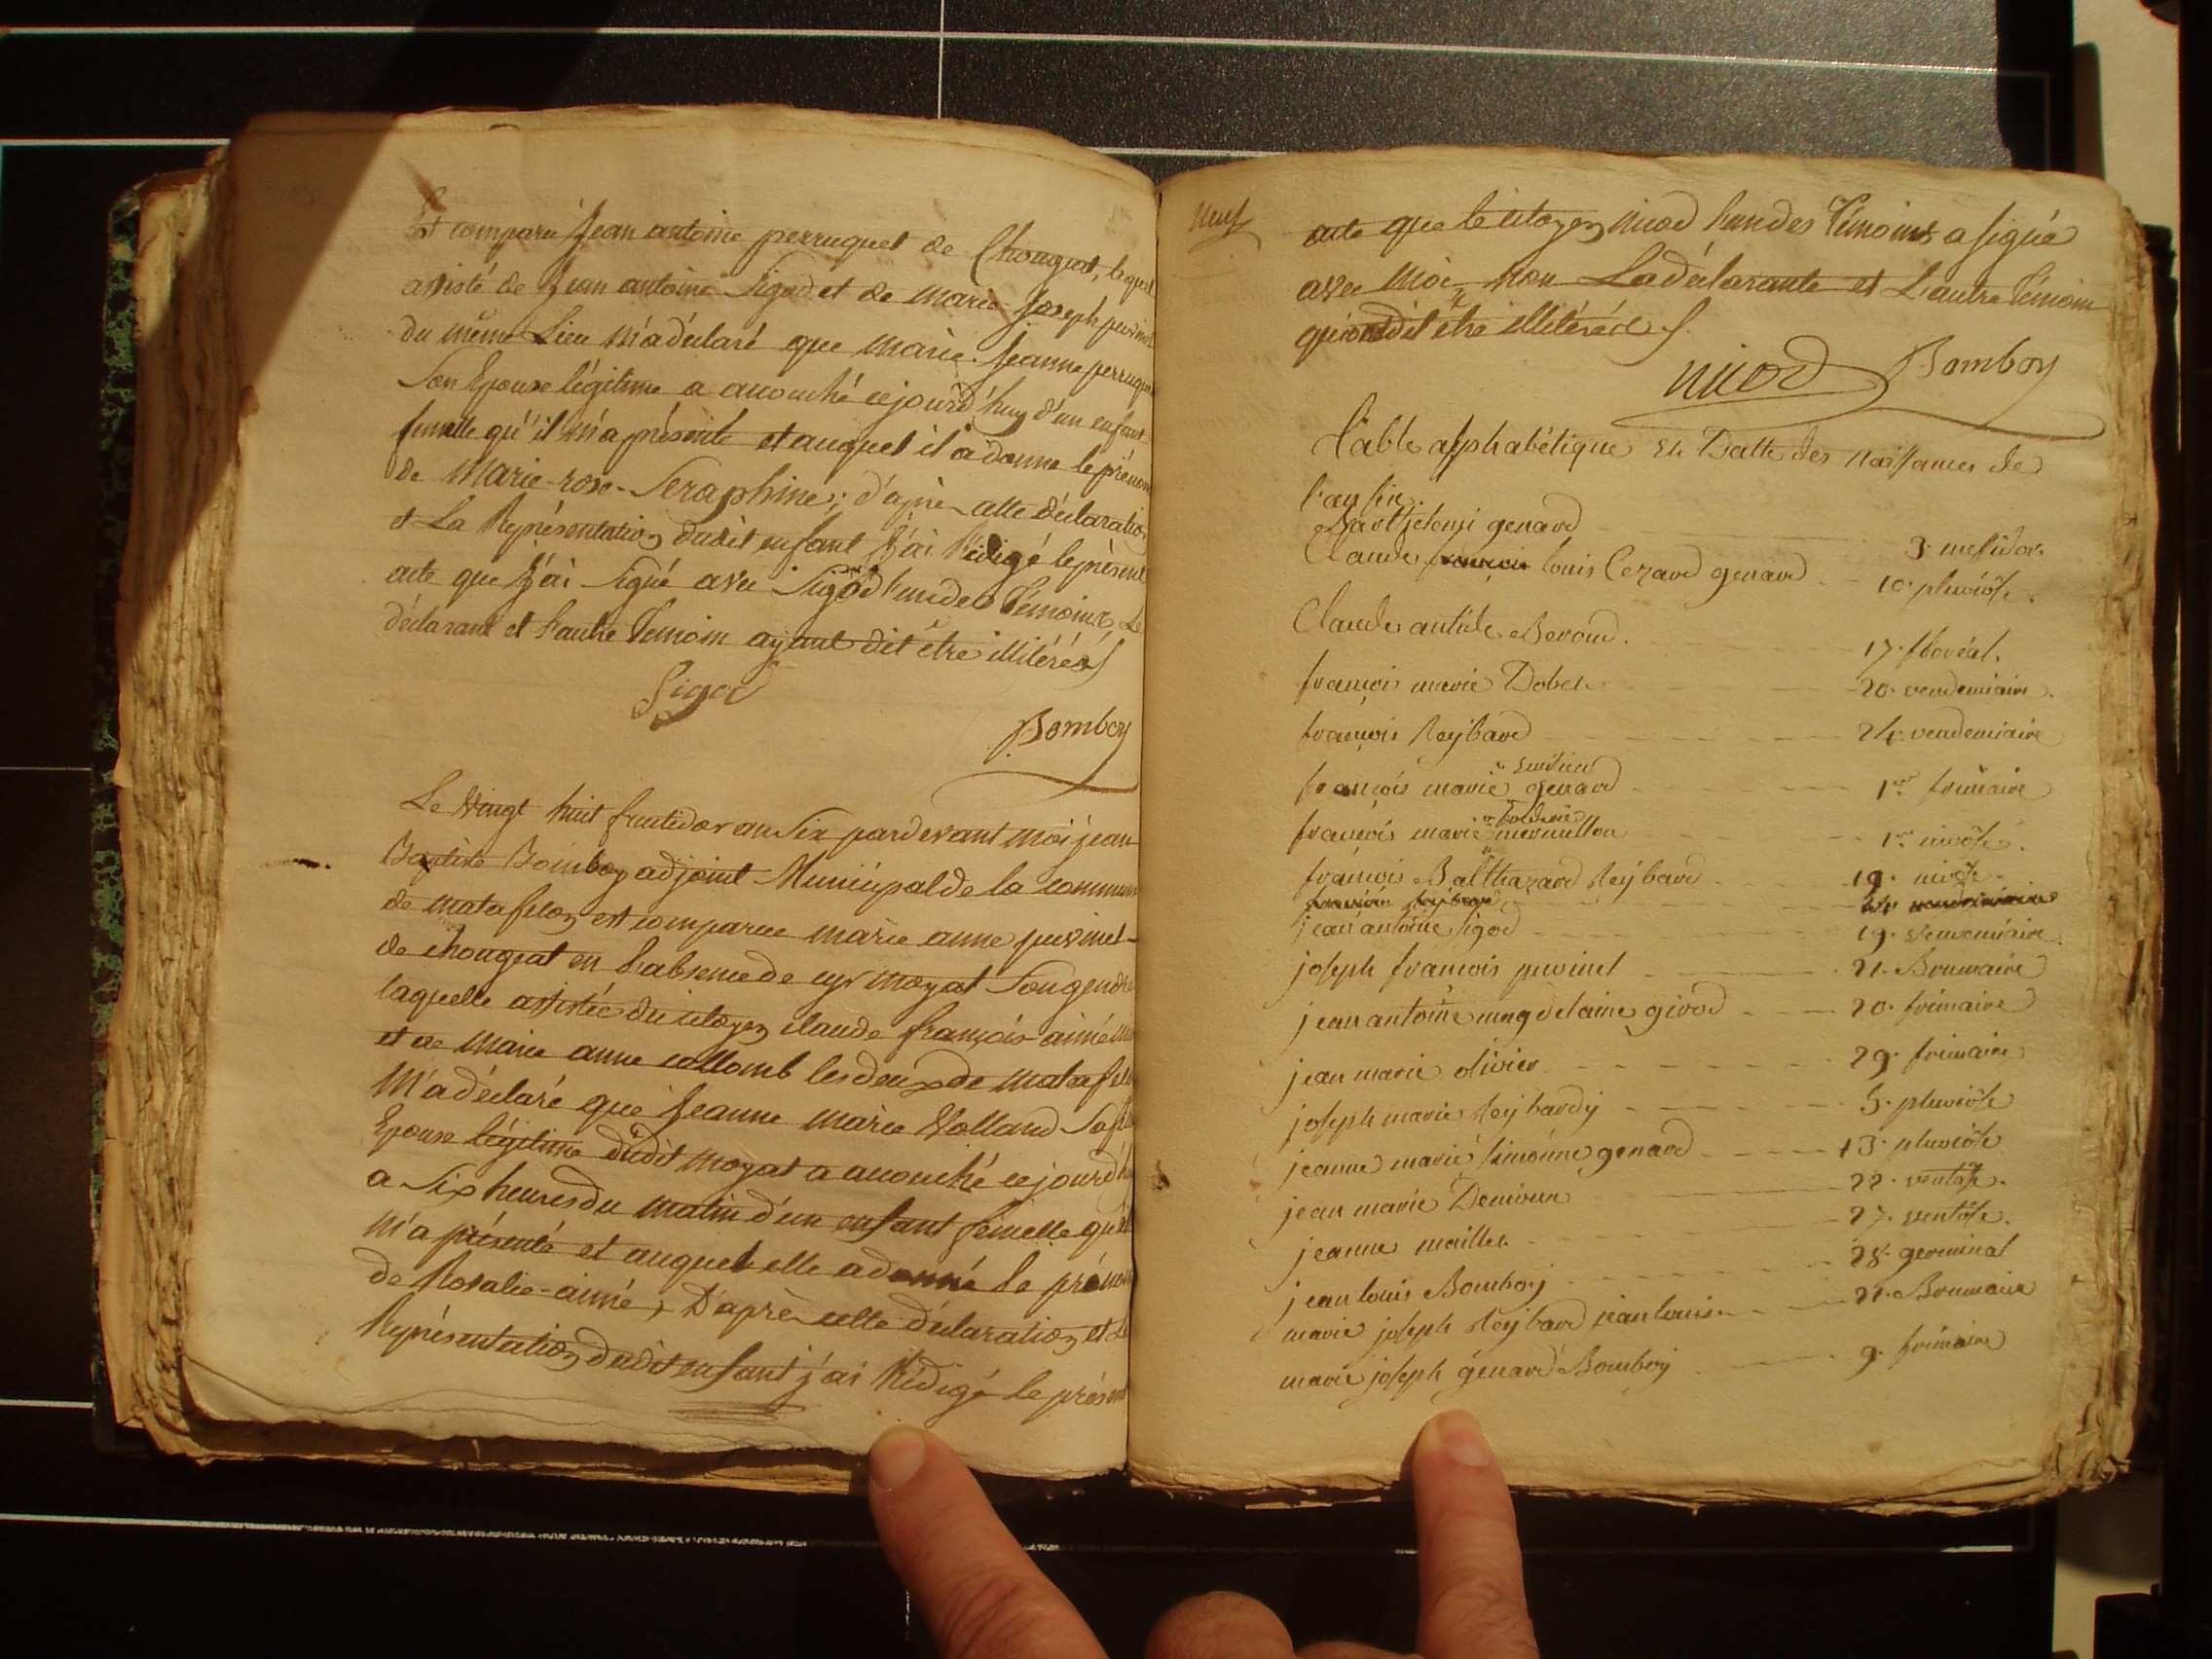 Est comparu Jean antoine perruquet de Chougeat, lequel
assisté de Jean antoine Sigod et de marie-Joseph puvinel
du même Lieu m'a déclaré que marie-Jeanne perruquet
Son Epouse légitime a accouché cejourd'huy d'un enfant
femelle qu'il m'a présenté et auquel il a donné le prénom
de Marie-rose-Seraphine; d'après cette déclaration
et La Représentation dudit enfant J'ai Rédigé le présent
acte que J'ai Signé avec Sigod l'un des Témoins, Le
déclarant et l'autre Témoin ayant dit être illitérés
Sigod
Bomboy
Le Vingt huit fructidor an Six pardevant moi jean
Baptiste Bomboy adjoint Municipal de la commune
de matafelon est comparue marie anne puvinel
de chougeat en l'absence de cyr moyat Son gendre
laquelle assistée du citoyen claude françois aimé
et de marie anne collomb les deux de matafelon
M'a déclaré que Jeanne marie Volland Sa fille
Epouse légitime dudit moyat a accouché cejourd'huy
a Six heures du matin d'un enfant femelle qu'elle
m'a présenté et auquel elle a donné le prénom
de Rosalie-aimé, D'après cette déclaration et La
Représentation dudit enfant j'ai Rédigé le présent
neuf
acte que le citoyen nicod l'un des Témoins a signé
avec moi, non La déclarante et L'autre Témoin
qui ont dit être illitérés
nicod Bomboy
Table alphabétique Et Datte des naissances de
l'an six.
Barthelemi genard 3. messidor.
Claude louis Cezard genard 10. pluviôse.
Claude antide Beroud. 17. floréal.
françois marie Dobet 20. vendemiaire.
françois Reybard 24. vendemiaire
françois marie genard 1er frimaire
françois marie mermillon 1er nivôse.
françois Balthazard Reybard 19. nivôse.
jean antoine sigod 19. vendemiaire.
joseph francois puvinel 21. Brumaire
jean antoine magdelaine girod 20. frimaire
jean marie olivier 29. frimaire
joseph marie Reybard j 5. pluviôse
jeanne marie simonne genard 13. pluviôse
jean marie 22. ventôse.
jeanne maillet 27. ventôse.
jean louis Bomboy 28. germinal
marie joseph Reybard jean louis 21. Brumaire
marie joseph genard Bomboy 9. frimaire